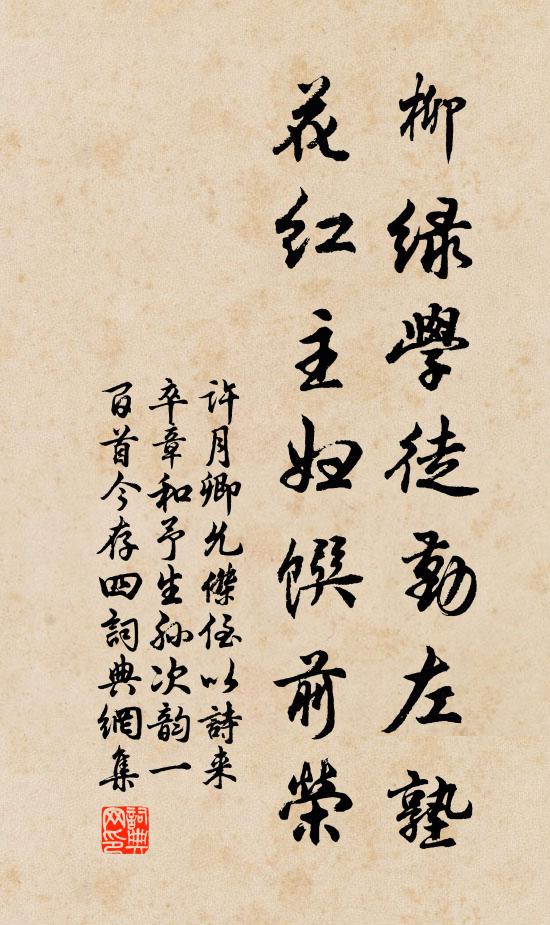 柳绿學徒勤左塾
花红主婦饌前榮
許月卿允傑侄以詩来
卒章和予生孙次韵一
百首今存四詞典網集
詞典网印